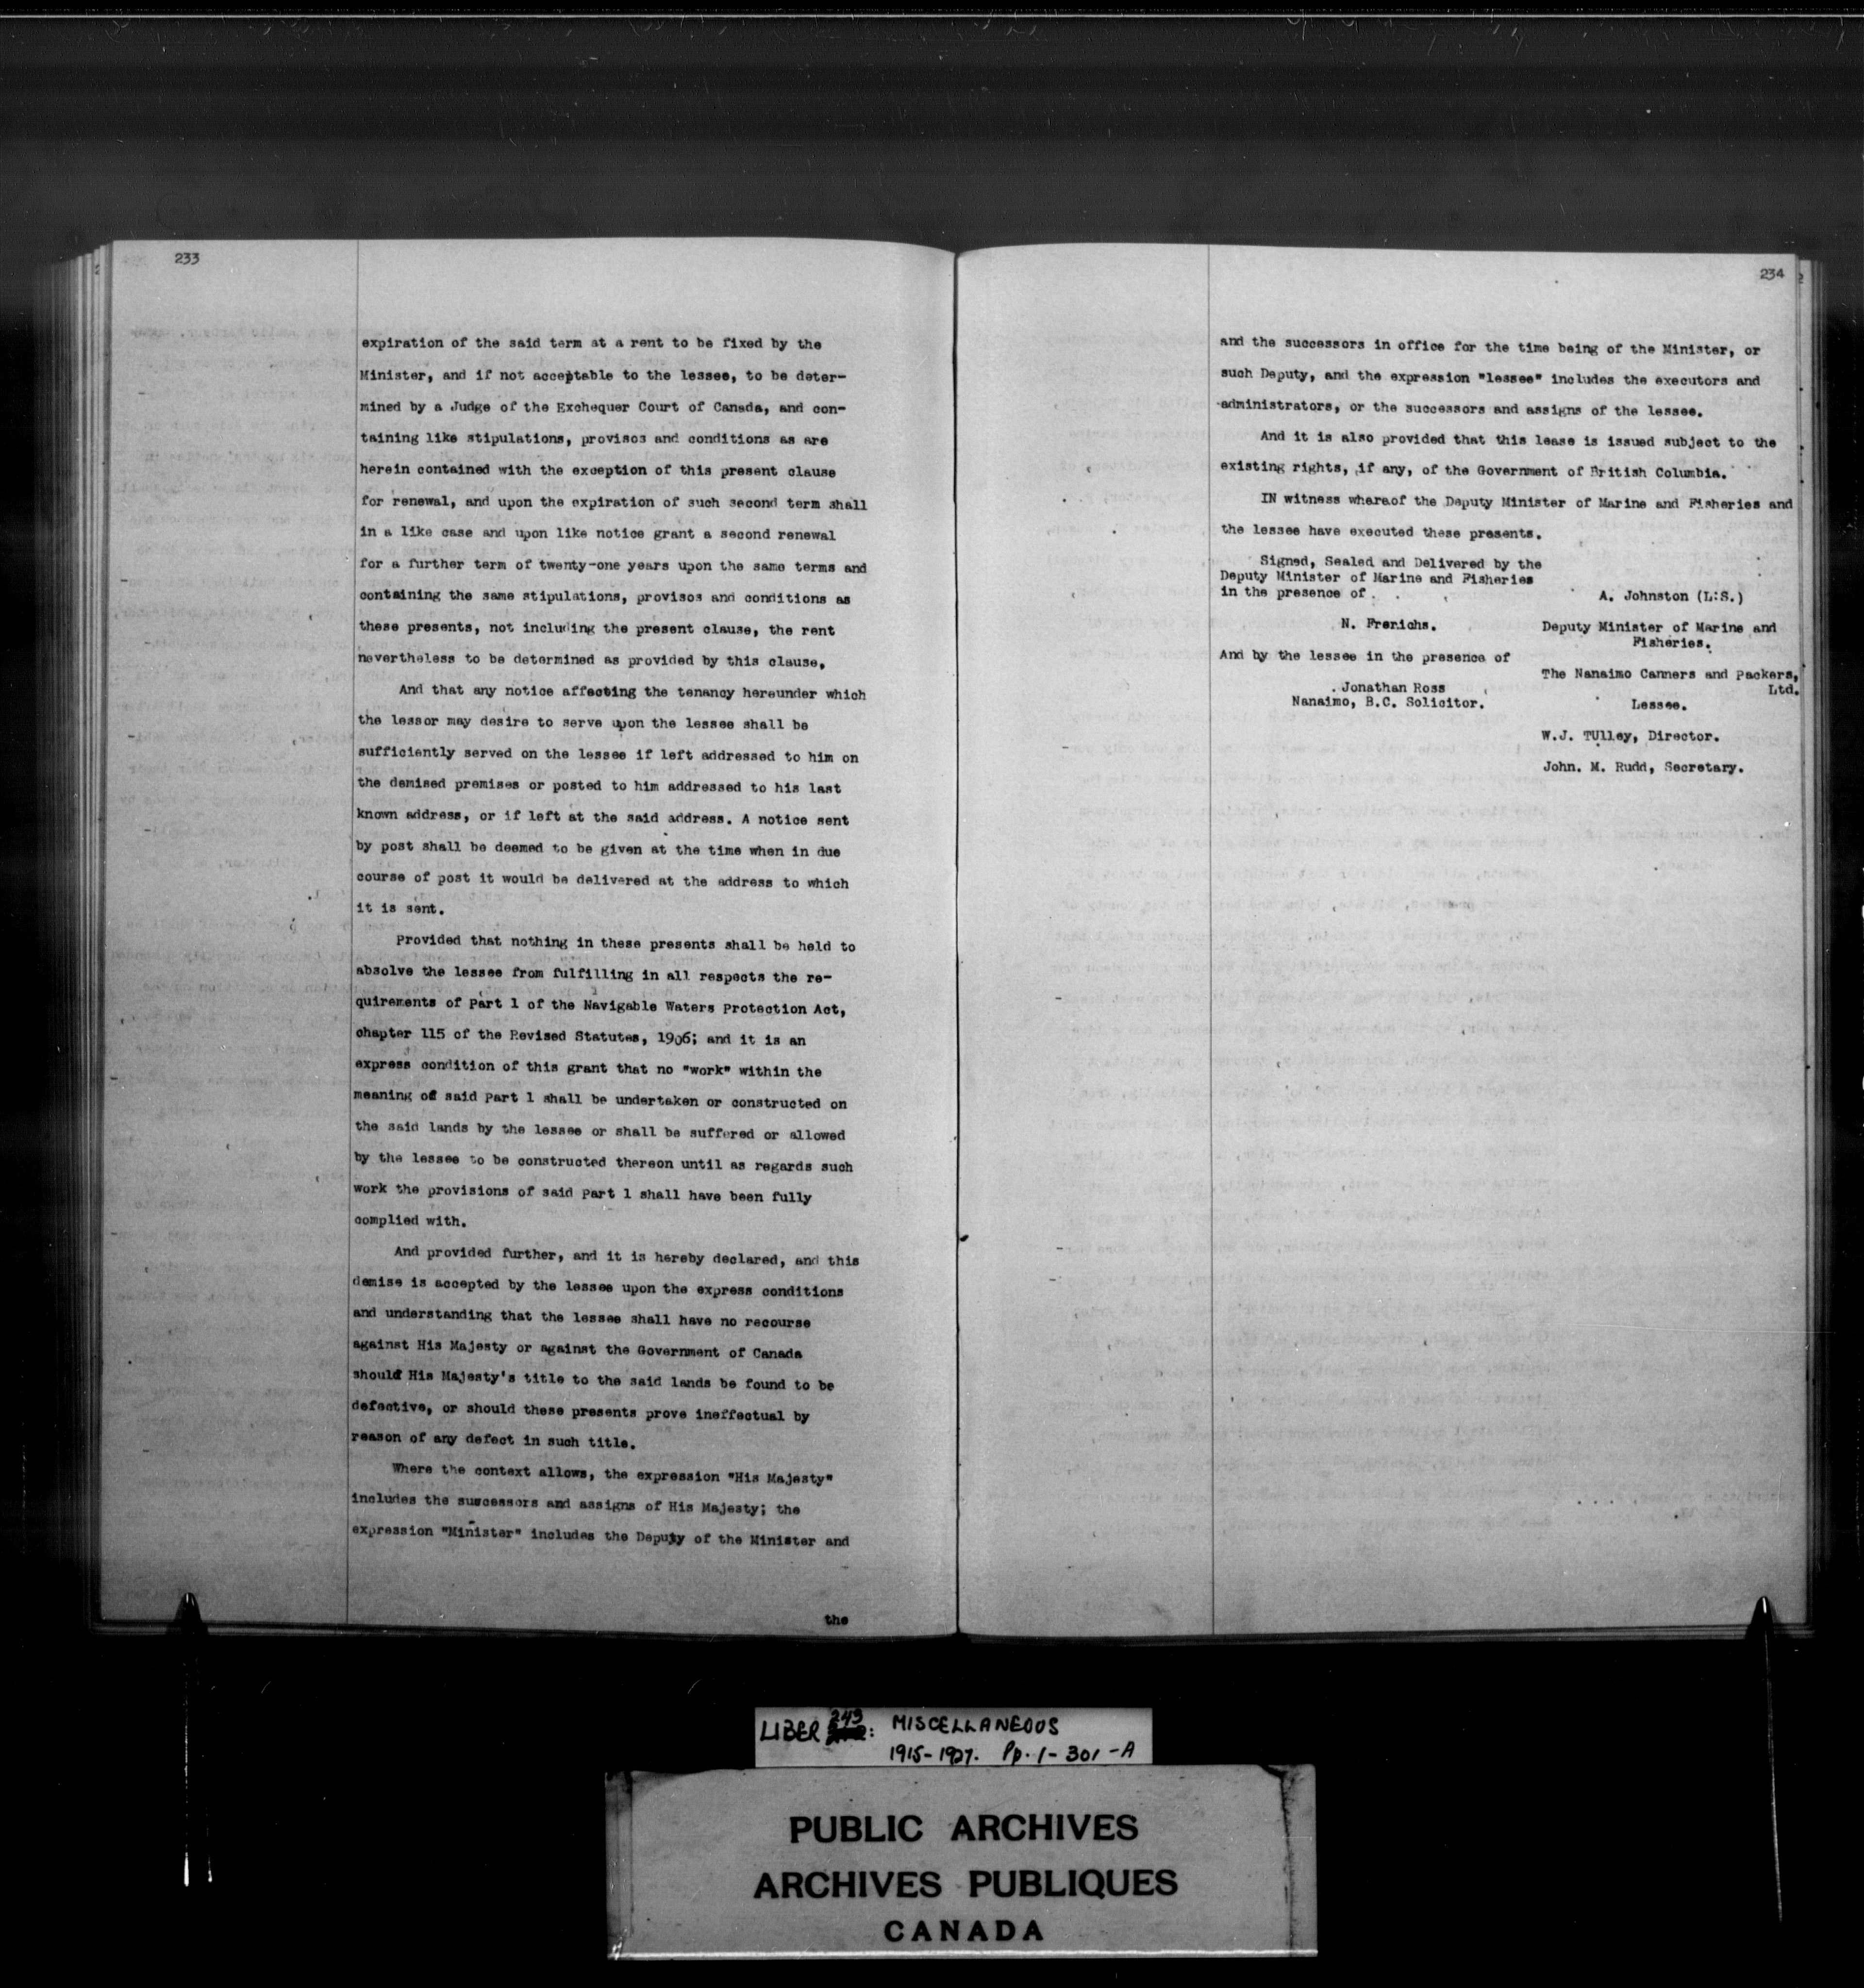 233
expiration of the said term at a rent to be fixed by the
Minister, and if not acceptable to the lessee, to be deter-
mined by a Judge of the Exchequer Court of Canada, and con-
taining like stipulations, provisos and conditions as are
herein contained with the exception of this present clause
for renewal, and upon the expiration of such second term shall
in a like case and upon like notice grant a second renewal
for a further term of twenty-one years upon the same terms and
containing the same stipulations, provisos and conditions as
these presents, not including the present clause, the rent
nevertheless to be determined as provided by this clause,
And that any notice affecting the tenancy hereunder which
the lessor may desire to serve upon the lessee shall be
sufficiently served on the lessee if left addressed to him on
the demised premises or posted to him addressed to his last
known address, or if left at the said address. A notice sent
by post shall be deemed to be given at the time when in due
course of post it would be delivered at the address to which
it is sent.
Provided that nothing in these presents shall be held to
absolve the lessee from fulfilling in all respects the re-
quirements of Part 1 of the Navigable Waters Protection Act,
chapter 115 of the Revised Statutes, 1906; and it is an
express condition of this grant that no "work" within the
meaning of said Part 1 shall be undertaken or constructed on
the said lands by the lessee or shall be suffered or allowed
by the lessee to be constructed thereon until as regards such
work the provisions of said Part 1 shall have been fully
complied with.
And provided further, and it is hereby declared, and this
demise is accepted by the lessee upon the express conditions
and understanding that the lessee shall have no recourse
against His Majesty or against the Government of Canada
should His Majesty's title to the said lands be found to be
defective, or should these presents prove ineffectual by
reason of any defect in such title.
Where the context allows, the expression "His Majesty"
includes the successors and assigns of His Majesty; the
expression "Minister" includes the Deputy of the Minister and
the
234
and the successors in office for the time being of the Minister, or
such Deputy, and the expression "lessee" includes the executors and
administrators, or the successors and assigns of the lessee.
And it is also provided that this lease is issued subject to the
existing rights, if any, of the Government of British Columbia.
IN witness whereof the Deputy Minister of Marine and Fisheries and
the lessee have executed these presents.
Signed, Sealed and Delivered by the
Deputy Minister of Marine and Fisheries
in the presence of
A. Johnston (L:S.)
N. Frerichs.
Deputy Minister of Marine and
Fisheries.
And by the lessee in the presence of
The Nanaimo Canners and Packers,
Ltd.
Jonathan Ross
Nanaimo, B.C. Solicitor.
Lessee.
W.J. TUlley, Director.
John. M. Rudd, Secretary.
LIBER 243: MISCELLANEOUS
1915-1927. Pp. 1-301-A
PUBLIC ARCHIVES
ARCHIVES PUBLIQUES
CANADA